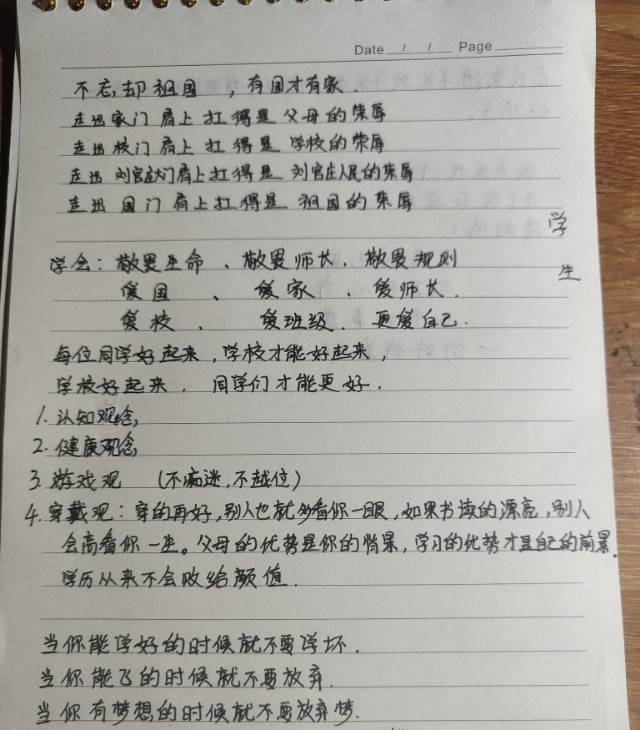 Date / / Page
不忘却祖国 ，有国才有家．
走出家门 肩上扛得是 父母的荣辱
走出校门 肩上扛得是 学校的荣辱
走出刘官庄门肩上扛得是 刘官庄人民的荣辱
走出国门 肩上扛得是 祖国的荣辱
学生
学会：敬畏生命 、敬畏师长、敬畏规则
爱国 、 爱家 、爱师长．
爱校 、 爱班级． 更爱自己．
每位同学好起来，学校才能好起来，
学校好起来． 同学们才能更好．
1.认知观念，
2.健康观念
3.游戏观 （不痴迷，不越位）
4.穿戴观：穿的再好，别人也就多看你一眼，如果书读的漂亮，别人
会高看你一生。父母的优势是你的背景，学习的优势才是自己的前景．
学历从来不会败给颜值．
当你能学好的时候就不要学坏．
当你能飞的时候就不要放弃．
当你有梦想的时候就不要放弃梦．